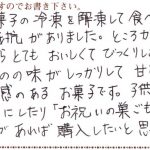 すのでお書き下さい。
菓子の冷凍を解凍して食べ
抵抗がありました。ところが
らとてもおいしくてびっくりし
の味がしっかりして 甘
感のある お菓子です。子供
にしたり「お祝いの巣ごも
があれば 購入したいと思